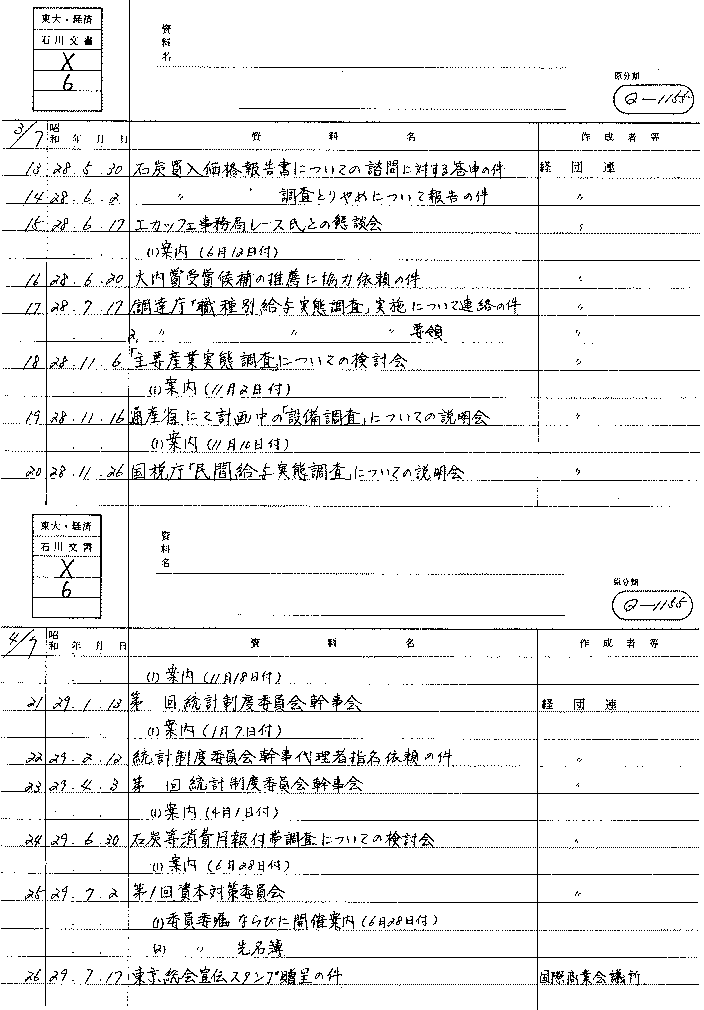 東大・経済
石川文書
X
6
資料名
原分類
Q-1155
3/7 昭和 年 月 日 資 料 名 作成者等
13 28.5.30 石炭買入価格報告書についての諮問に対する答申の件 経団連
14 28.6.2 〃 〃 調査とりやめについて報告の件 〃
15 28.6.17 エカッフェ事務局レース氏との懇談会 〃
(1)案内(6月12日付)
16 28.6.20 大内賞受賞候補の推薦に協力依頼の件 〃
17 28.7.17 調達庁「職種別給与実態調査」実施について連絡の件 〃
2. 〃 〃 〃 要領 〃
18 28.11.6 「主要産業実態調査」についての検討会 〃
(1)案内(11月2日付)
19 28.11.16 通産省にて計画中の「設備調査」についての説明会 〃
(1)案内(11月10日付)
20 28.11.26 国税庁「民間給与実態調査」についての説明会 〃
東大・経済
石川文書
X
6
資料名
原分類
Q-1155
4/7 昭和 年 月 日 資 料 名 作成者等
(1)案内(11月18日付)
21 29.1.13 第 回統計制度委員会幹事会 経団連
(1)案内(1月7日付)
22 29.2.12 統計制度委員会幹事代理者指名依頼の件 〃
23 29.4.3 第 回統計制度委員会幹事会 〃
(1)案内(4月1日付)
24 29.6.30 石炭等消費月報付帯調査についての検討会 〃
(1)案内(6月28日付)
25 29.7.2 第1回資本対策委員会 〃
(1)委員委嘱ならびに開催案内(6月28日付)
(2) 〃 先名簿
26 29.7.17 東京総会宣伝スタンプ贈呈の件 国際商業会議所